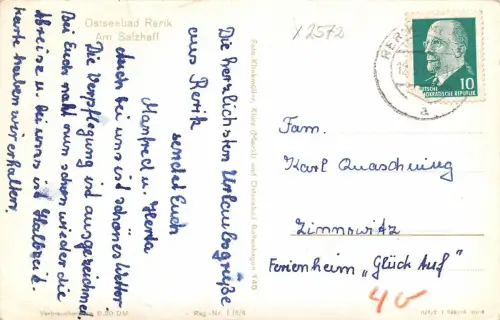 Ostseebad Rerik
Am Salzhaff
Die herzlichsten Urlaubsgrüße
aus Rerik
sendet Euch
Manfred u. Herta
Auch bei uns ist schönes Wetter
Die Verpflegung ist ausgezeichnet.
Bei Euch naht nun schon wieder die
Abreise u. bei uns ist Halbzeit.
Karte haben wir erhalten.
Foto Klinkmöller, Klütz (Meckl.) und Ostseebad Boltenhagen 140
Verbraucherpreis 0.20 DM
X 2572
RERIK
a
DEUTSCHE
DEMOKRATISCHE REPUBLIK
10
Fam.
Karl Quaschning
Zinnowitz
Ferienheim „Glück Auf"
40